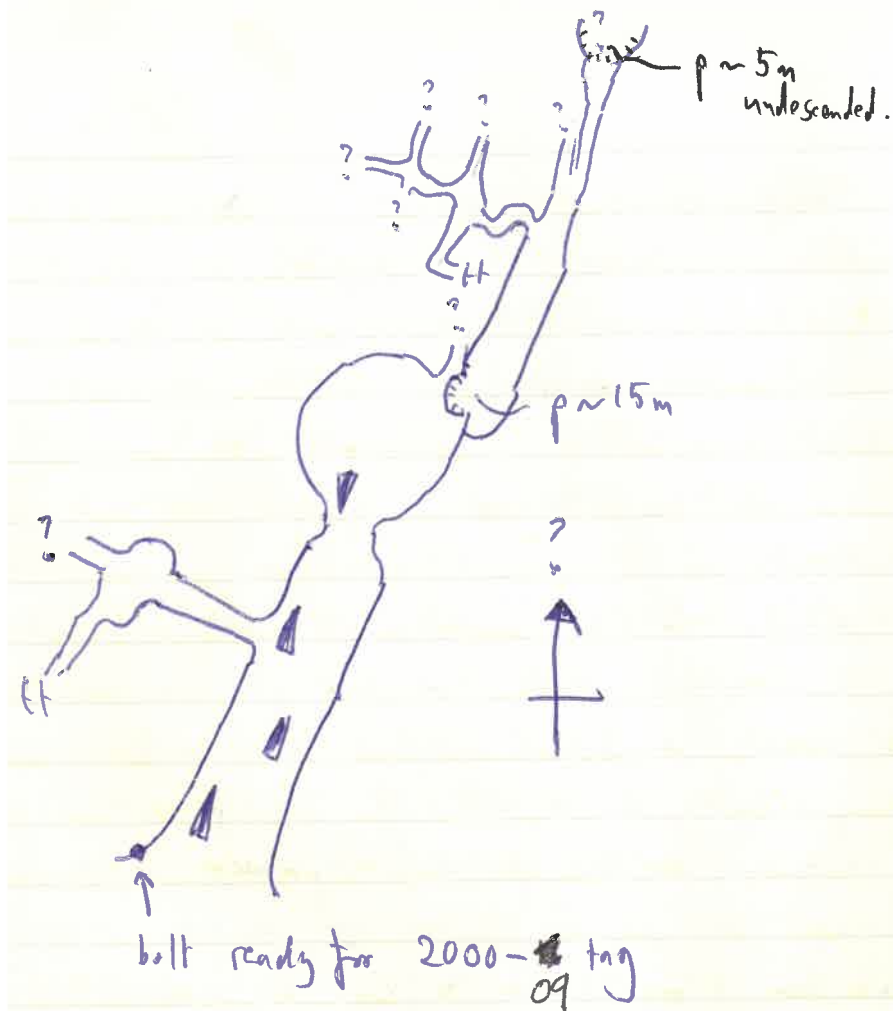 ?
p ~ 5m
undescended.
?
?
?
?
?
tt
?
p ~ 15m
?
?
tt
bolt ready for 2000-
09
tag